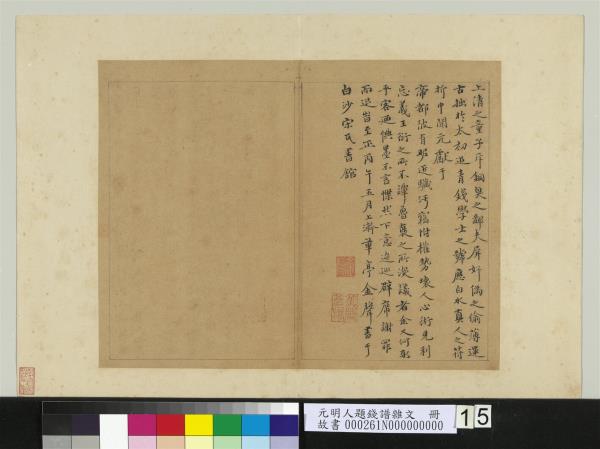 上清之童子斥銅臭之鄙夫屏奸偽之偷薄還
古拙於太初追青錢學士之號應白水真人之符
於中聞元獻于
帝都故有昵近贓污竊附權勢壞人心術見利
忘義王衍之所不譚魯褒之所深議者余又何取
乎客迺憮墨不言慄然下意逡巡辟席謝罪
而退旹至正丙午五月上澣華亭金聲書于
白沙宋氏書館
元明人題錢譜雜文 冊
故書 000261N000000000
15